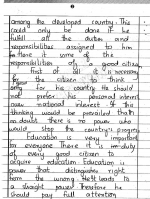 among the developed country. This
could only be done if he
fulfill all the duties and
responsibilities assigned to him
Here is some of the
responsibilities of a good citizen
First of all it is necessary
for the citizen to think
only for his country. He should
not prefer his personal interest
over national interest if this
thinking would be prevailed that
no doubt there is no power who
would stop the country's progress
Education is very important
for everyone There it is
duty of every good citizen to
acquire education Education is
power that distinguishes right
from the wrong that leads to
a straight path Therefore he
should pay full attention